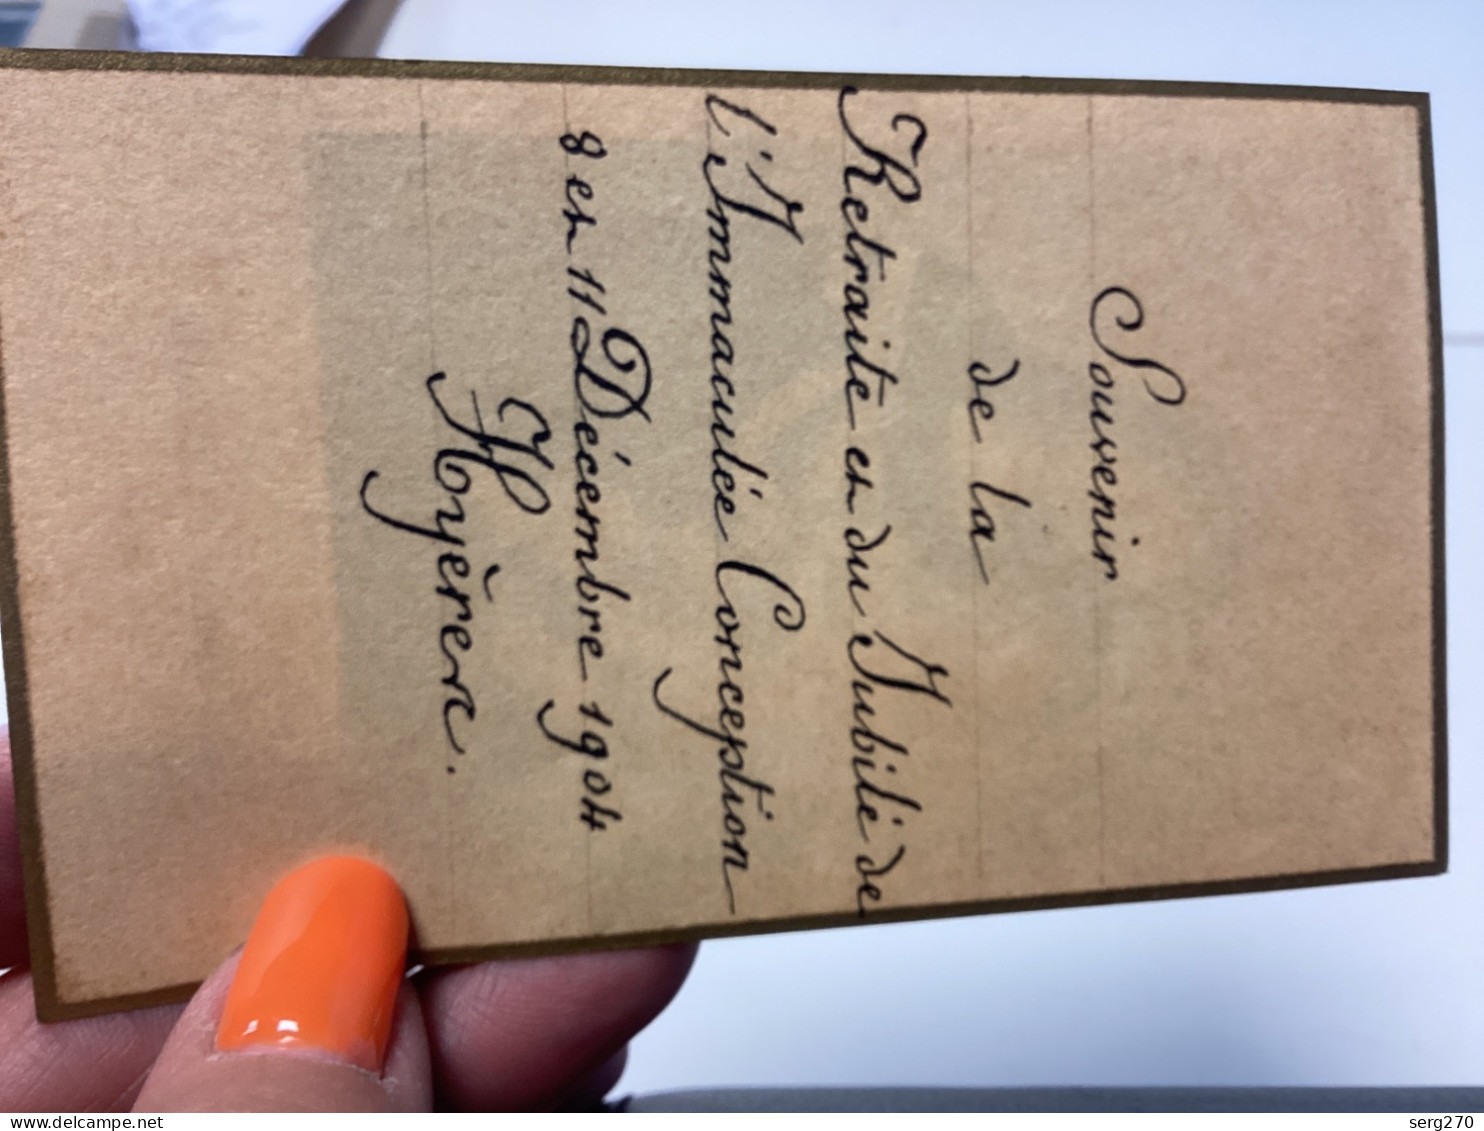 Souvenir
de la
Retraite et du Jubilé de
l'Immaculée Conception
8 et 11 Décembre 1904
serg270